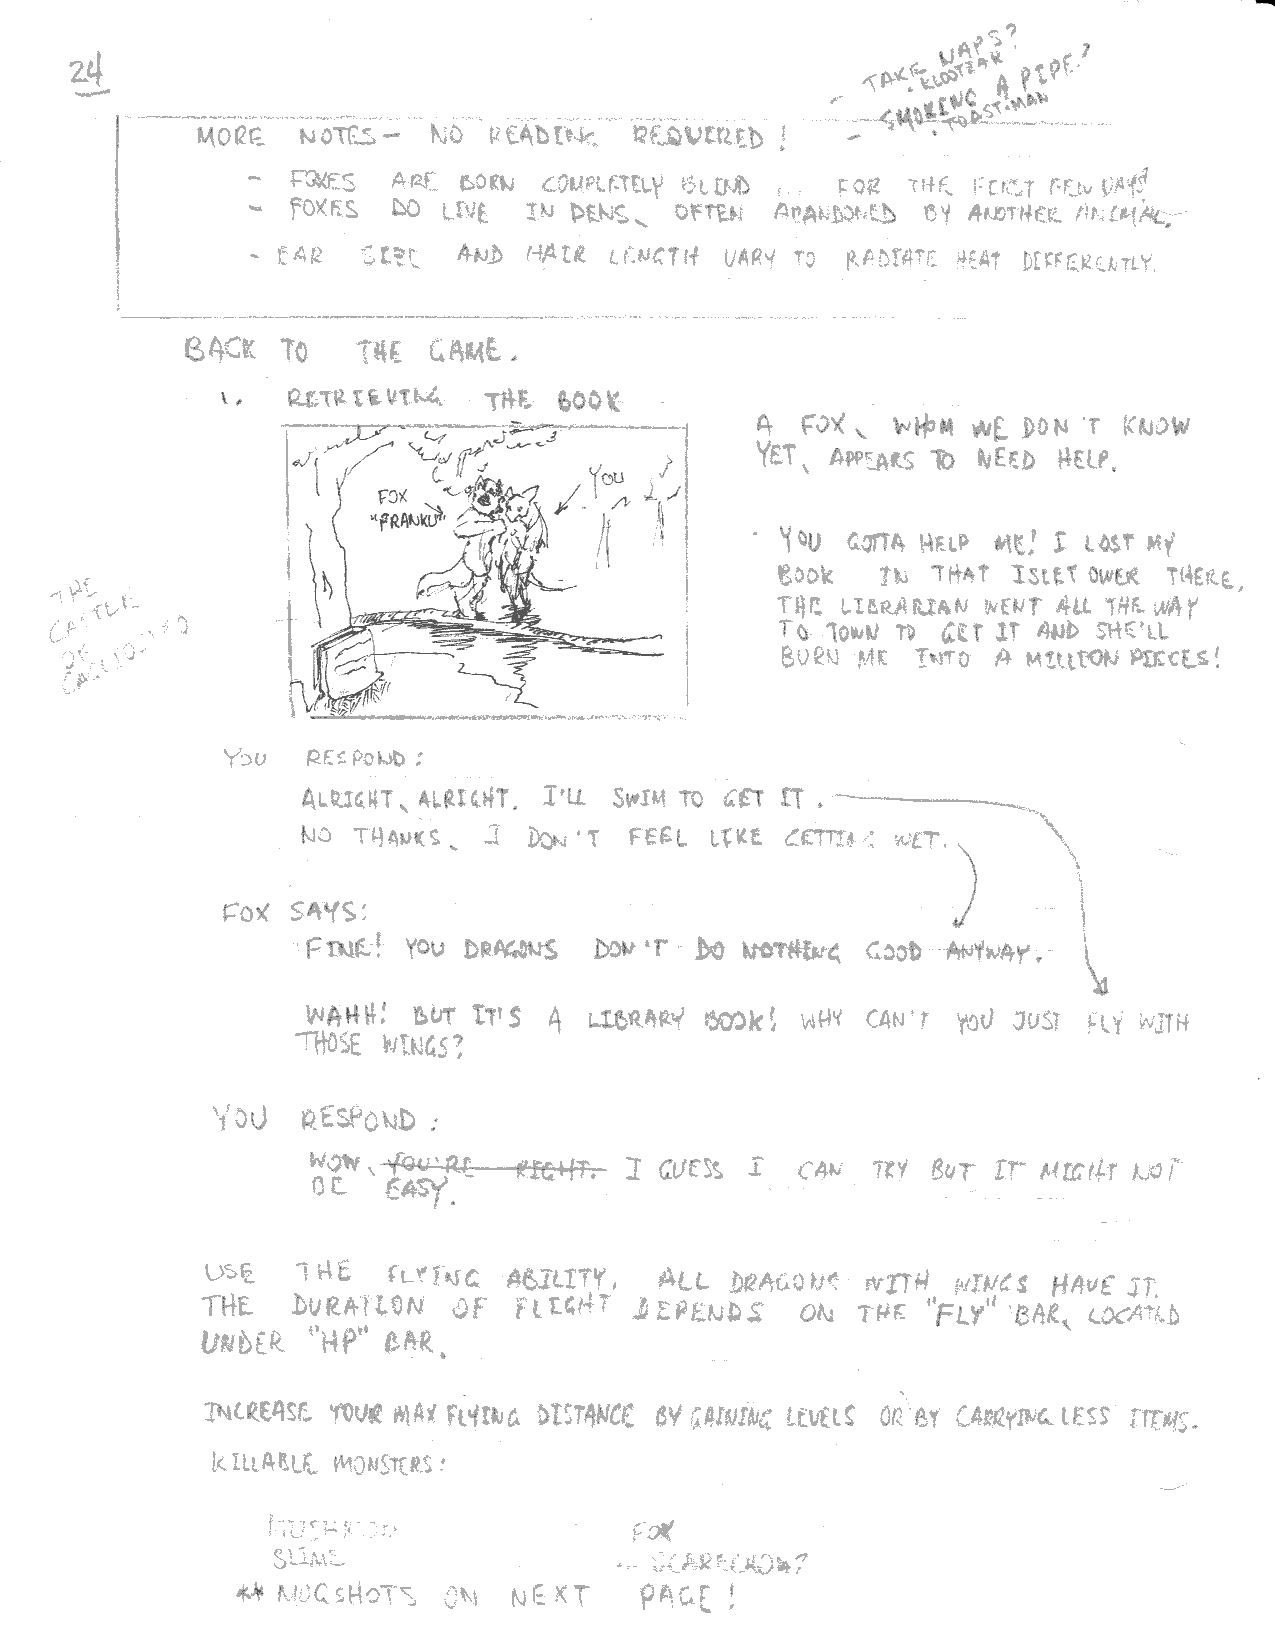 24
- TAKE NAPS?
• KLOOTZAK
- SMOKING A PIPE?
• TOAST-MAN
MORE NOTES - NO READING REQUIRED!
- FOXES ARE BORN COMPLETELY BLIND ... FOR THE FIRST FEW DAYS!
- FOXES DO LIVE IN DENS, OFTEN ABANDONED BY ANOTHER ANIMAL.
- EAR SIZE AND HAIR LENGTH VARY TO RADIATE HEAT DIFFERENTLY.
BACK TO THE GAME.
1. RETRIEVING THE BOOK
FOX
"FRANKU"
YOU
A FOX, WHOM WE DON'T KNOW
YET, APPEARS TO NEED HELP.
YOU GOTTA HELP ME! I LOST MY
BOOK IN THAT ISLET OWER THERE,
THE LIBRARIAN WENT ALL THE WAY
TO TOWN TO GET IT AND SHE'LL
BURN ME INTO A MILLION PIECES!
THE
CASTLE
OF
YOU RESPOND:
ALRIGHT, ALRIGHT. I'LL SWIM TO GET IT.
NO THANKS, I DON'T FEEL LIKE GETTING WET.
FOX SAYS:
FINE! YOU DRAGONS DON'T DO NOTHING GOOD ANYWAY.
WAHH! BUT IT'S A LIBRARY BOOK! WHY CAN'T YOU JUST FLY WITH
THOSE WINGS?
YOU RESPOND:
WOW, YOU'RE RIGHT. I GUESS I CAN TRY BUT IT MIGHT NOT
BE EASY.
USE THE FLYING ABILITY. ALL DRAGONS WITH WINGS HAVE IT.
THE DURATION OF FLIGHT DEPENDS ON THE "FLY" BAR, LOCATED
UNDER "HP" BAR.
INCREASE YOUR MAX FLYING DISTANCE BY GAINING LEVELS OR BY CARRYING LESS ITEMS.
KILLABLE MONSTERS:
FOX
SLIME
SCARECROW?
** MUGSHOTS ON NEXT PAGE!